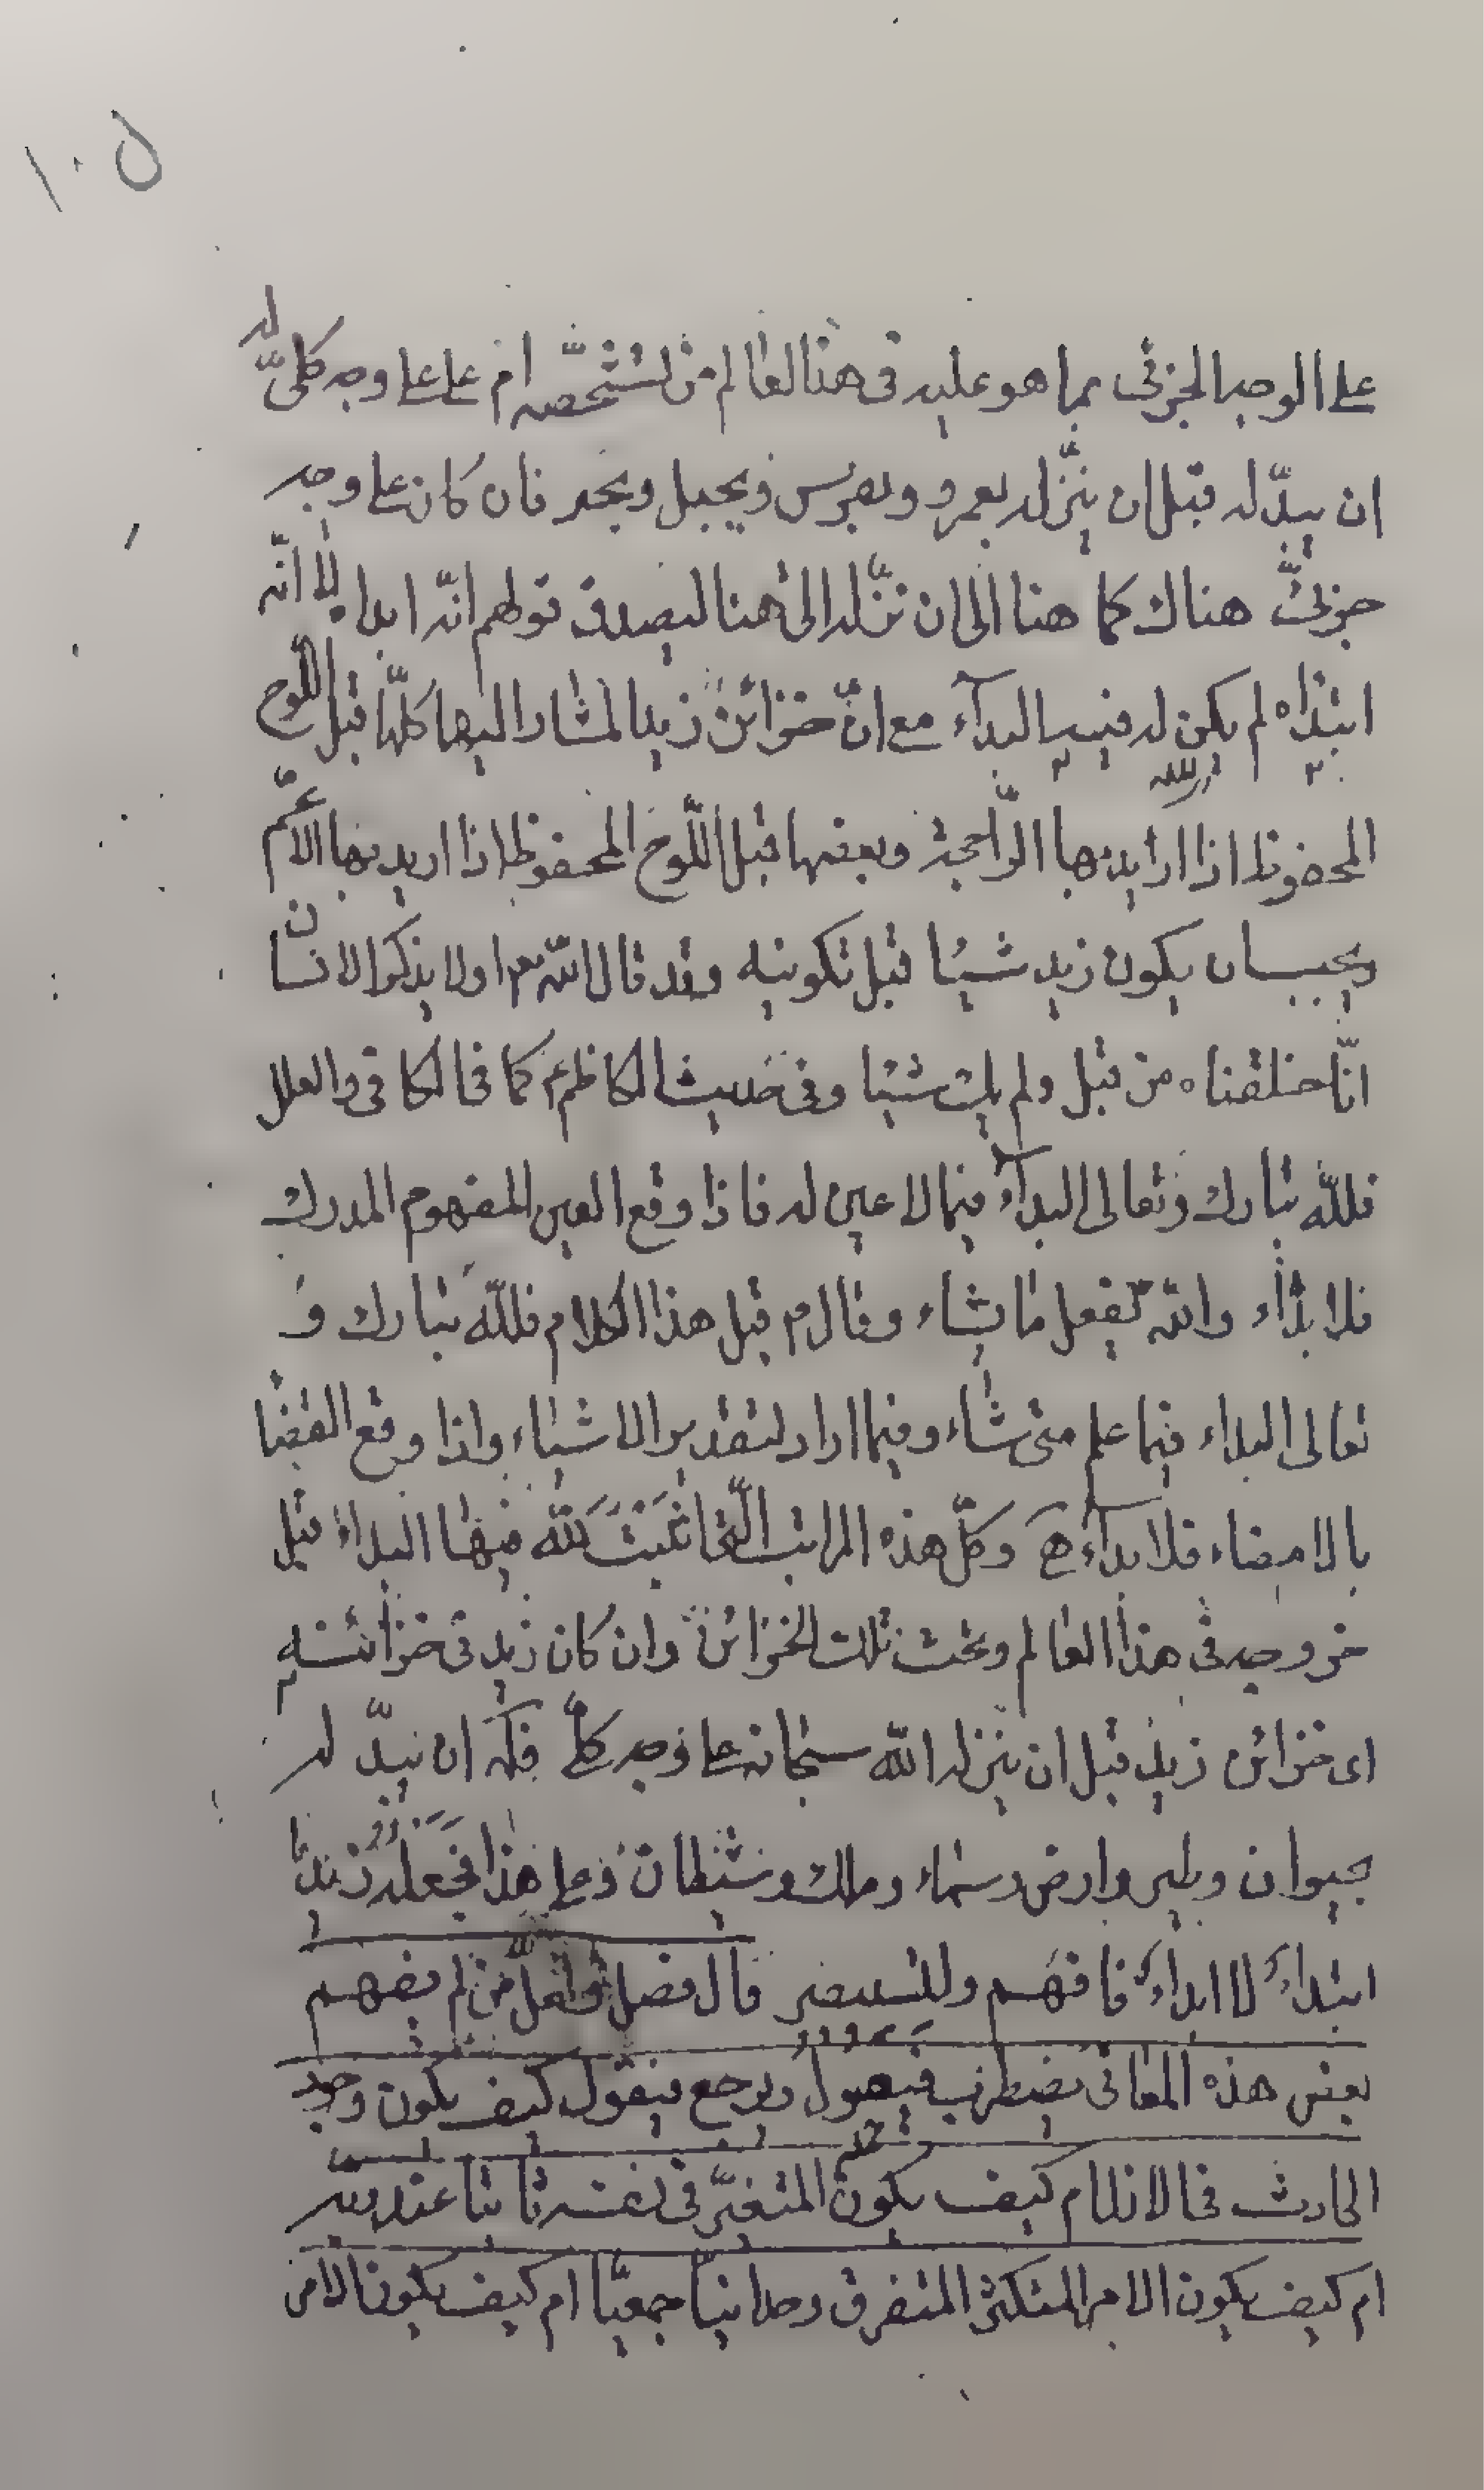 ١٠٥
على الوجه الجزئى بما هو عليه فى هذا العالم من تشخّصه ام على على وجه كلىّ له
ان يبدّله قبل ان ينزّله بعمرو وبفرس وبجبل وبحر فان كان على وجه
جزئىّ هناك كما هنا الى ان نزّله الى هنا ليصدق قولهم انّه ابدا لا انّه
ابتداه لم يكن له فيه البدآء مع انّ خزائن زيد المشار اليها كلّها قبل اللّوح
المحفوظ اذا اريد بها الرّاجحية وبعضها قبل اللّوح المحفوظ اذا اريد بها الاعمّ
ويجب ان يكون زيد شيئا قبل تكوينه وقد قال الله تعم اولا يذكر الانسان
انّا خلقناه من قبل ولم يك شيئا وفى حديث الكاظم ع كما فى الكافى والعلل
فللّه تبارك وتعالى البدآء فيما لا عين له فاذا وقع العين المفهوم المدرك
فلا بدآء والله يفعل ما يشاء وقال م قبل هذا الكلام فللّه تبارك و
تعالى البداء فيما علم متى شاء وفيما اراد لتقدير الاشياء واذا وقع القضا
بالامضاء فلا بدآء هَ وكلّ هذه المراتب الّتى اثبتت للّه فيها البداء قبل
خروجه فى هذا العالم وتحت تلك الخزائن وان كان زيد فى خزائنه
اى خزائن زيد قبل ان ينزله الله سبحانه على وجه كلّى فله ان يبدّله
بحيوان وطير وارض وسماء وملك وشيطان وعلى هذا فجعله زيدا
ابتداءً لا ابداءً فافهم وللتبصر قال فصل ولعلّك من لم يفهم
بعض هذه المعانى يضطرب فيصول ويرجع فيقول كيف يكون وجود
الحادث فى الازل ام كيف يكون المتغيّر فى نفسه ثابتا عند ربّه
ام كيف يكون الامر المتكثّر المتفرق وحدانيّا جمعيّا ام كيف يكون الامر